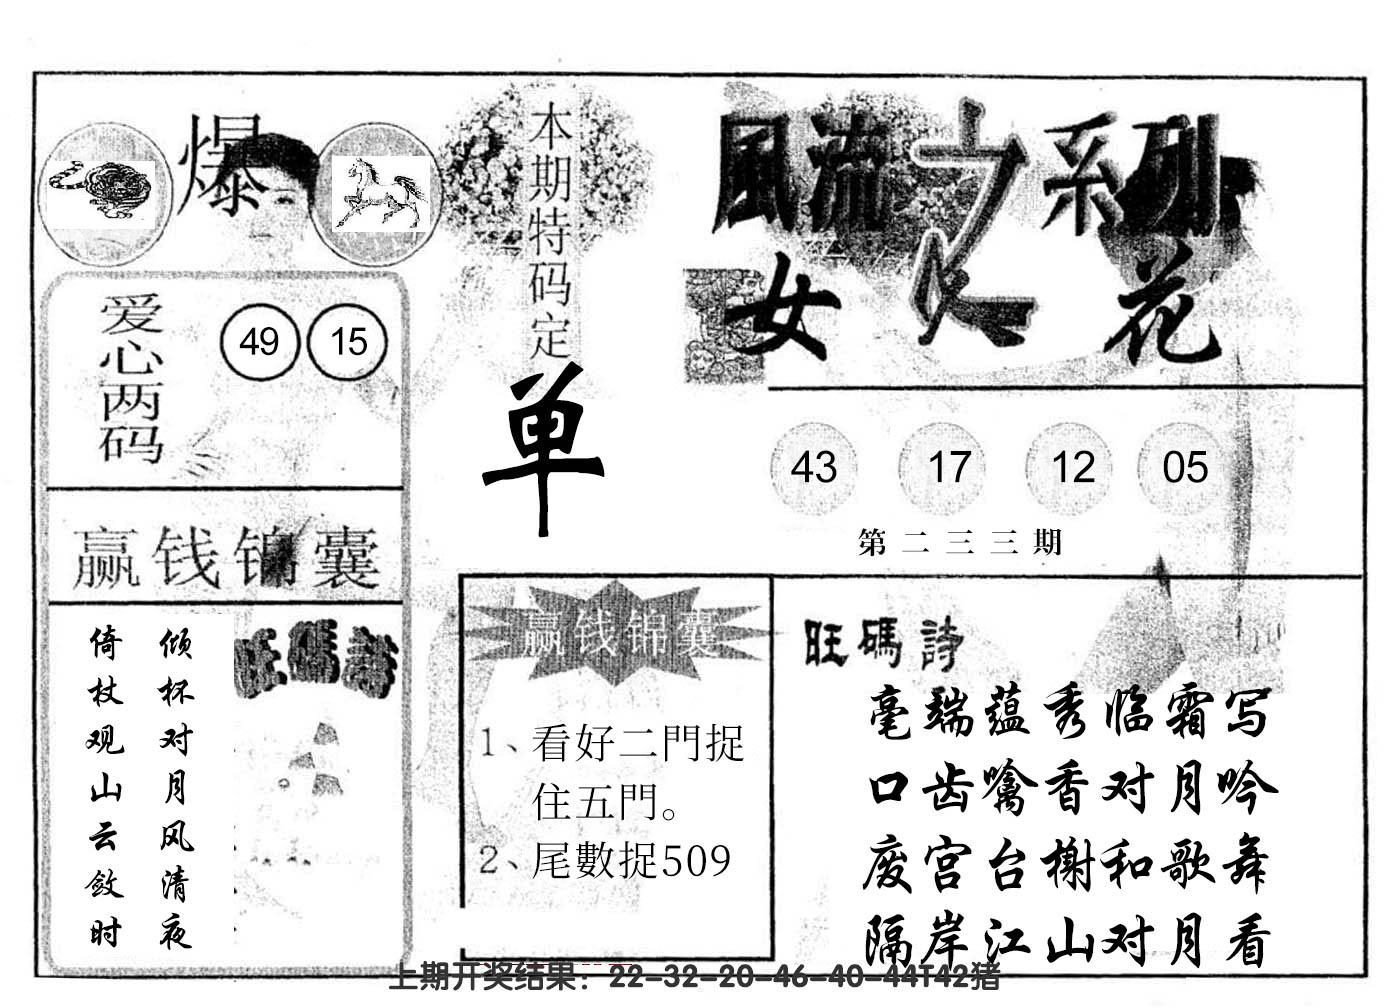 爆
本期特码定
单
風流之系列
女人花
爱心两码
49 15
43 17 12 05
第二三三期
赢钱锦囊
倾杯对月风清夜
倚杖观山云敛时
旺碼詩
赢钱锦囊
1、看好二門捉
住五門。
2、尾數捉509
旺碼詩
毫端蕴秀临霜写
口齿噙香对月吟
废宫台榭和歌舞
隔岸江山对月看
上期开奖结果：22-32-20-46-40-44T42猪